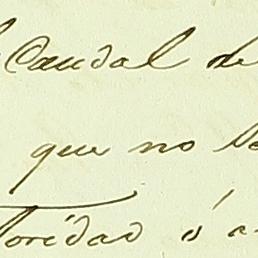 Caudal de
que no
toridad ó a